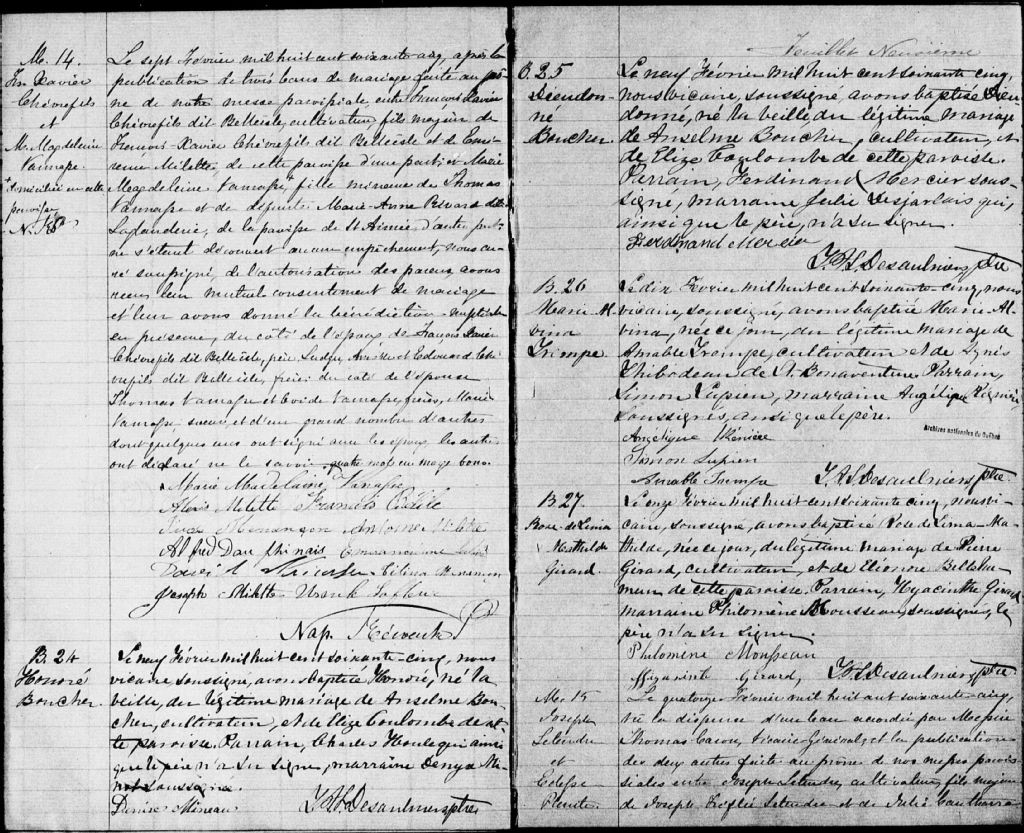 M. 14.
Frs Xavier
Chèvrefils
et
M. Magdeleine
Vanasse
+ domiciliée en cette
paroisse
Le sept Février mil huit cent soixante cinq, après la
publication de trois bans de mariage faite au prô-
ne de notre messe paroissiale, entre François Xavier
Chèvrefils dit Belleisle, cultivateur, fils majeur de
François-Xavier Chèvrefils dit Belleisle et de
Milette, de cette paroisse d'une part; et Marie
Magdeleine Vanasse + fille mineure de Thomas
Vanasse et de défunte Marie-Anne
de la paroisse de St Aimé, d'autre part;
ne s'étant découvert aucun empêchement, nous cu-
ré soussigné de l'autorisation des parens avons
reçu leur mutuel consentement de mariage
et leur avons donné la bénédiction nuptiale
en présence, du côté de l'époux de François Xavier
Chèvrefils dit Belleisle, père, et Edouard Chè-
vrefils dit Belleisle, frères; du côté de l'épouse
Thomas Vanasse et Vanasse, frères, Marie
Vanasse, soeur et d'un grand nombre d'autres
dont quelques uns ont signé avec les époux, les autres
ont déclaré ne le savoir. quatre mots en marge bons.
Marie Madelaine Vanasse
Alexis Milette
Antoine Milette
Alfred Dauphinais
David
Joseph Milette
Nap. Héroux
B. 24
Honoré
Boucher.
Le neuf Février mil huit cent soixante-cinq, nous
vicaire soussigné, avons baptisé Honoré, né la
veille, du légitime mariage de Anselme Bou-
cher, cultivateur, et de Elize Coulombe de cet-
te paroisse. Parrain, Charles Houle qui ainsi
que le père n'a su signer, marraine Denyse Mi-
not soussignée.
Denise Mineau
J. H. S. Desaulniers ptre
Feuillet Neuvième
B. 25
Dieudon-
né
Boucher.
Le neuf Février mil huit cent soixante cinq,
nous vicaire, soussigné, avons baptisé Dieu-
donné, né la veille du légitime mariage
de Anselme Boucher, cultivateur, et
de Elize Coulombe de cette paroisse.
Parrain, Ferdinand Mercier sous-
signé, marraine Julie Desjarlais qui,
ainsi que le père, n'a su signer.
Ferdinand Mercier
J. H. S. Desaulniers Ptre
B. 26
Marie Al-
vina
Trempe
Le dix Février mil huit cent soixante-cinq, nous
vicaire, soussigné, avons baptisé Marie Al-
vina, née ce jour, du légitime mariage de
Amable Trempe, cultivateur et de Agnès
Thibodeau de St. Bonaventure. Parrain,
Simon Lupien, marraine Angélique
soussignés, ainsi que le père.
Archives nationales du Québec
Angelique
Simon Lupien
Amable Trempe
J. H. S. Desaulniers ptre
B 27.
Rose-de-Lima
Mathilde
Girard.
Le onze Février mil huit cent soixante cinq, nous vi-
caire, soussigné, avons baptisé Rose de Lima Ma-
thilde, née ce jour, du légitime mariage de Pierre
Girard, cultivateur, et de Elionore Bellehu-
meur de cette paroisse. Parrain, Hyacinthe Girard
marraine Philomène Mousseau, soussignés, le
père n'a su signer.
Philomène Mousseau
Girard,
J. H. S. Desaulniers, ptre
M. 15
Joseph
Letendre
et
Le quatorze Février mil huit cent soixante-cinq,
vu la dispense d'un ban accordée par Messire
Thomas Caron, Vicaire Général, et la publication
des deux autres faite au prône de nos messes parois-
siales entre Joseph Letendre, cultivateur, fils majeur
de Joseph Letendre et de Julie